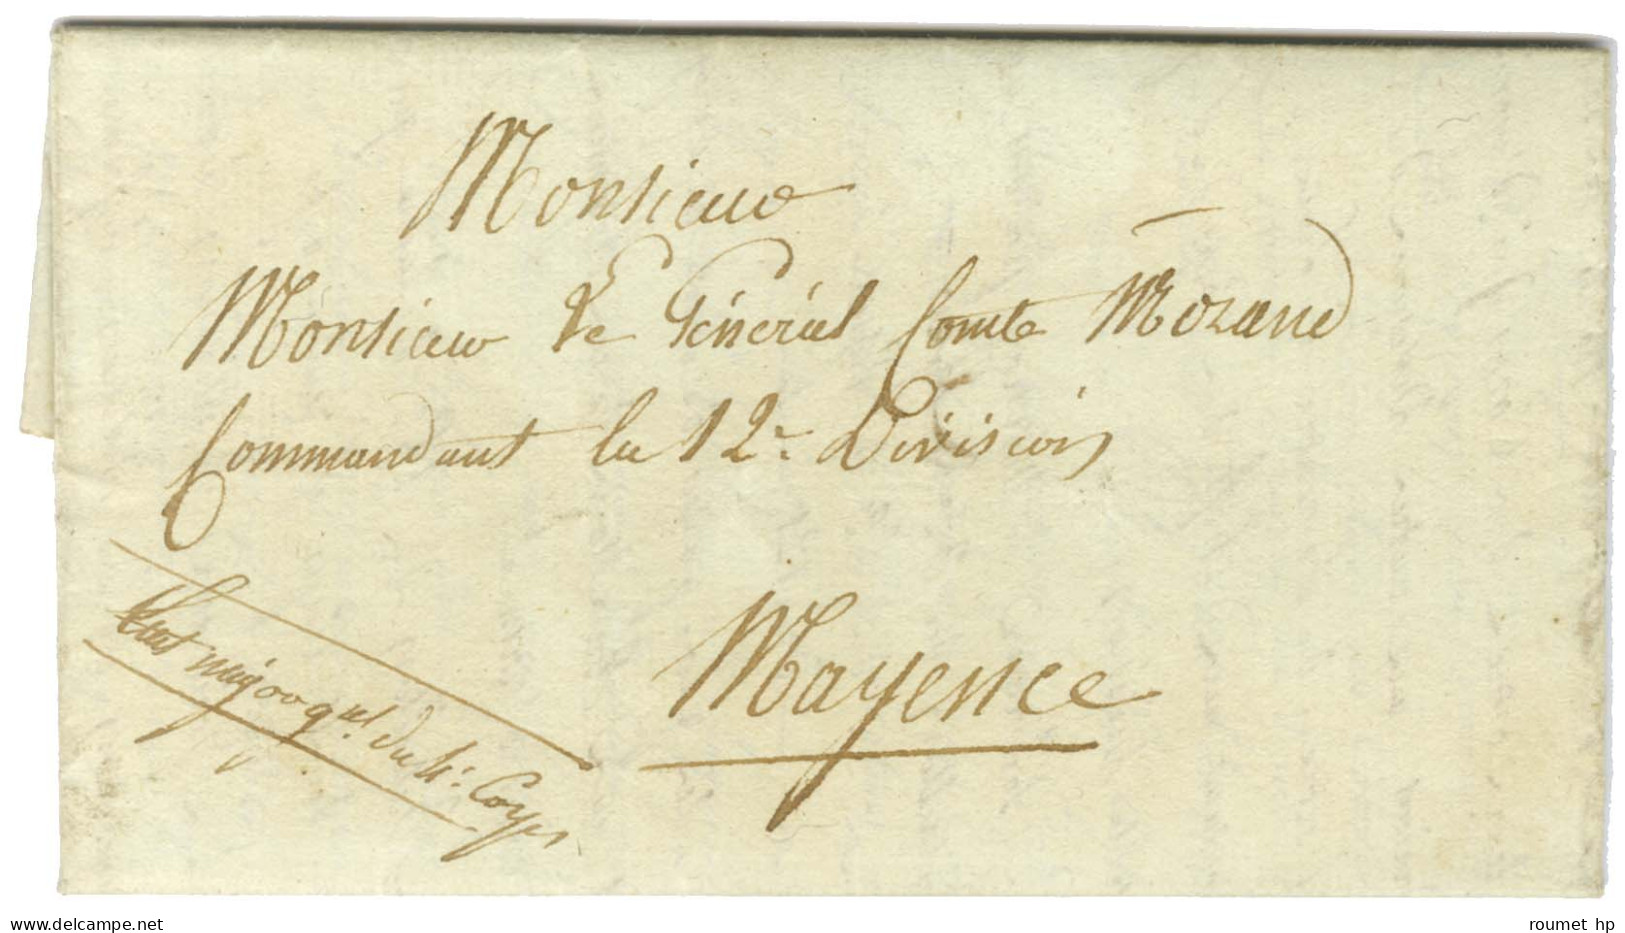 Monsieur
Monsieur Le Général Comte Morand
Commandant la 12e Division
Mayence
Etat major gal du 4e Corps
www.delcampe.net
roumet hp